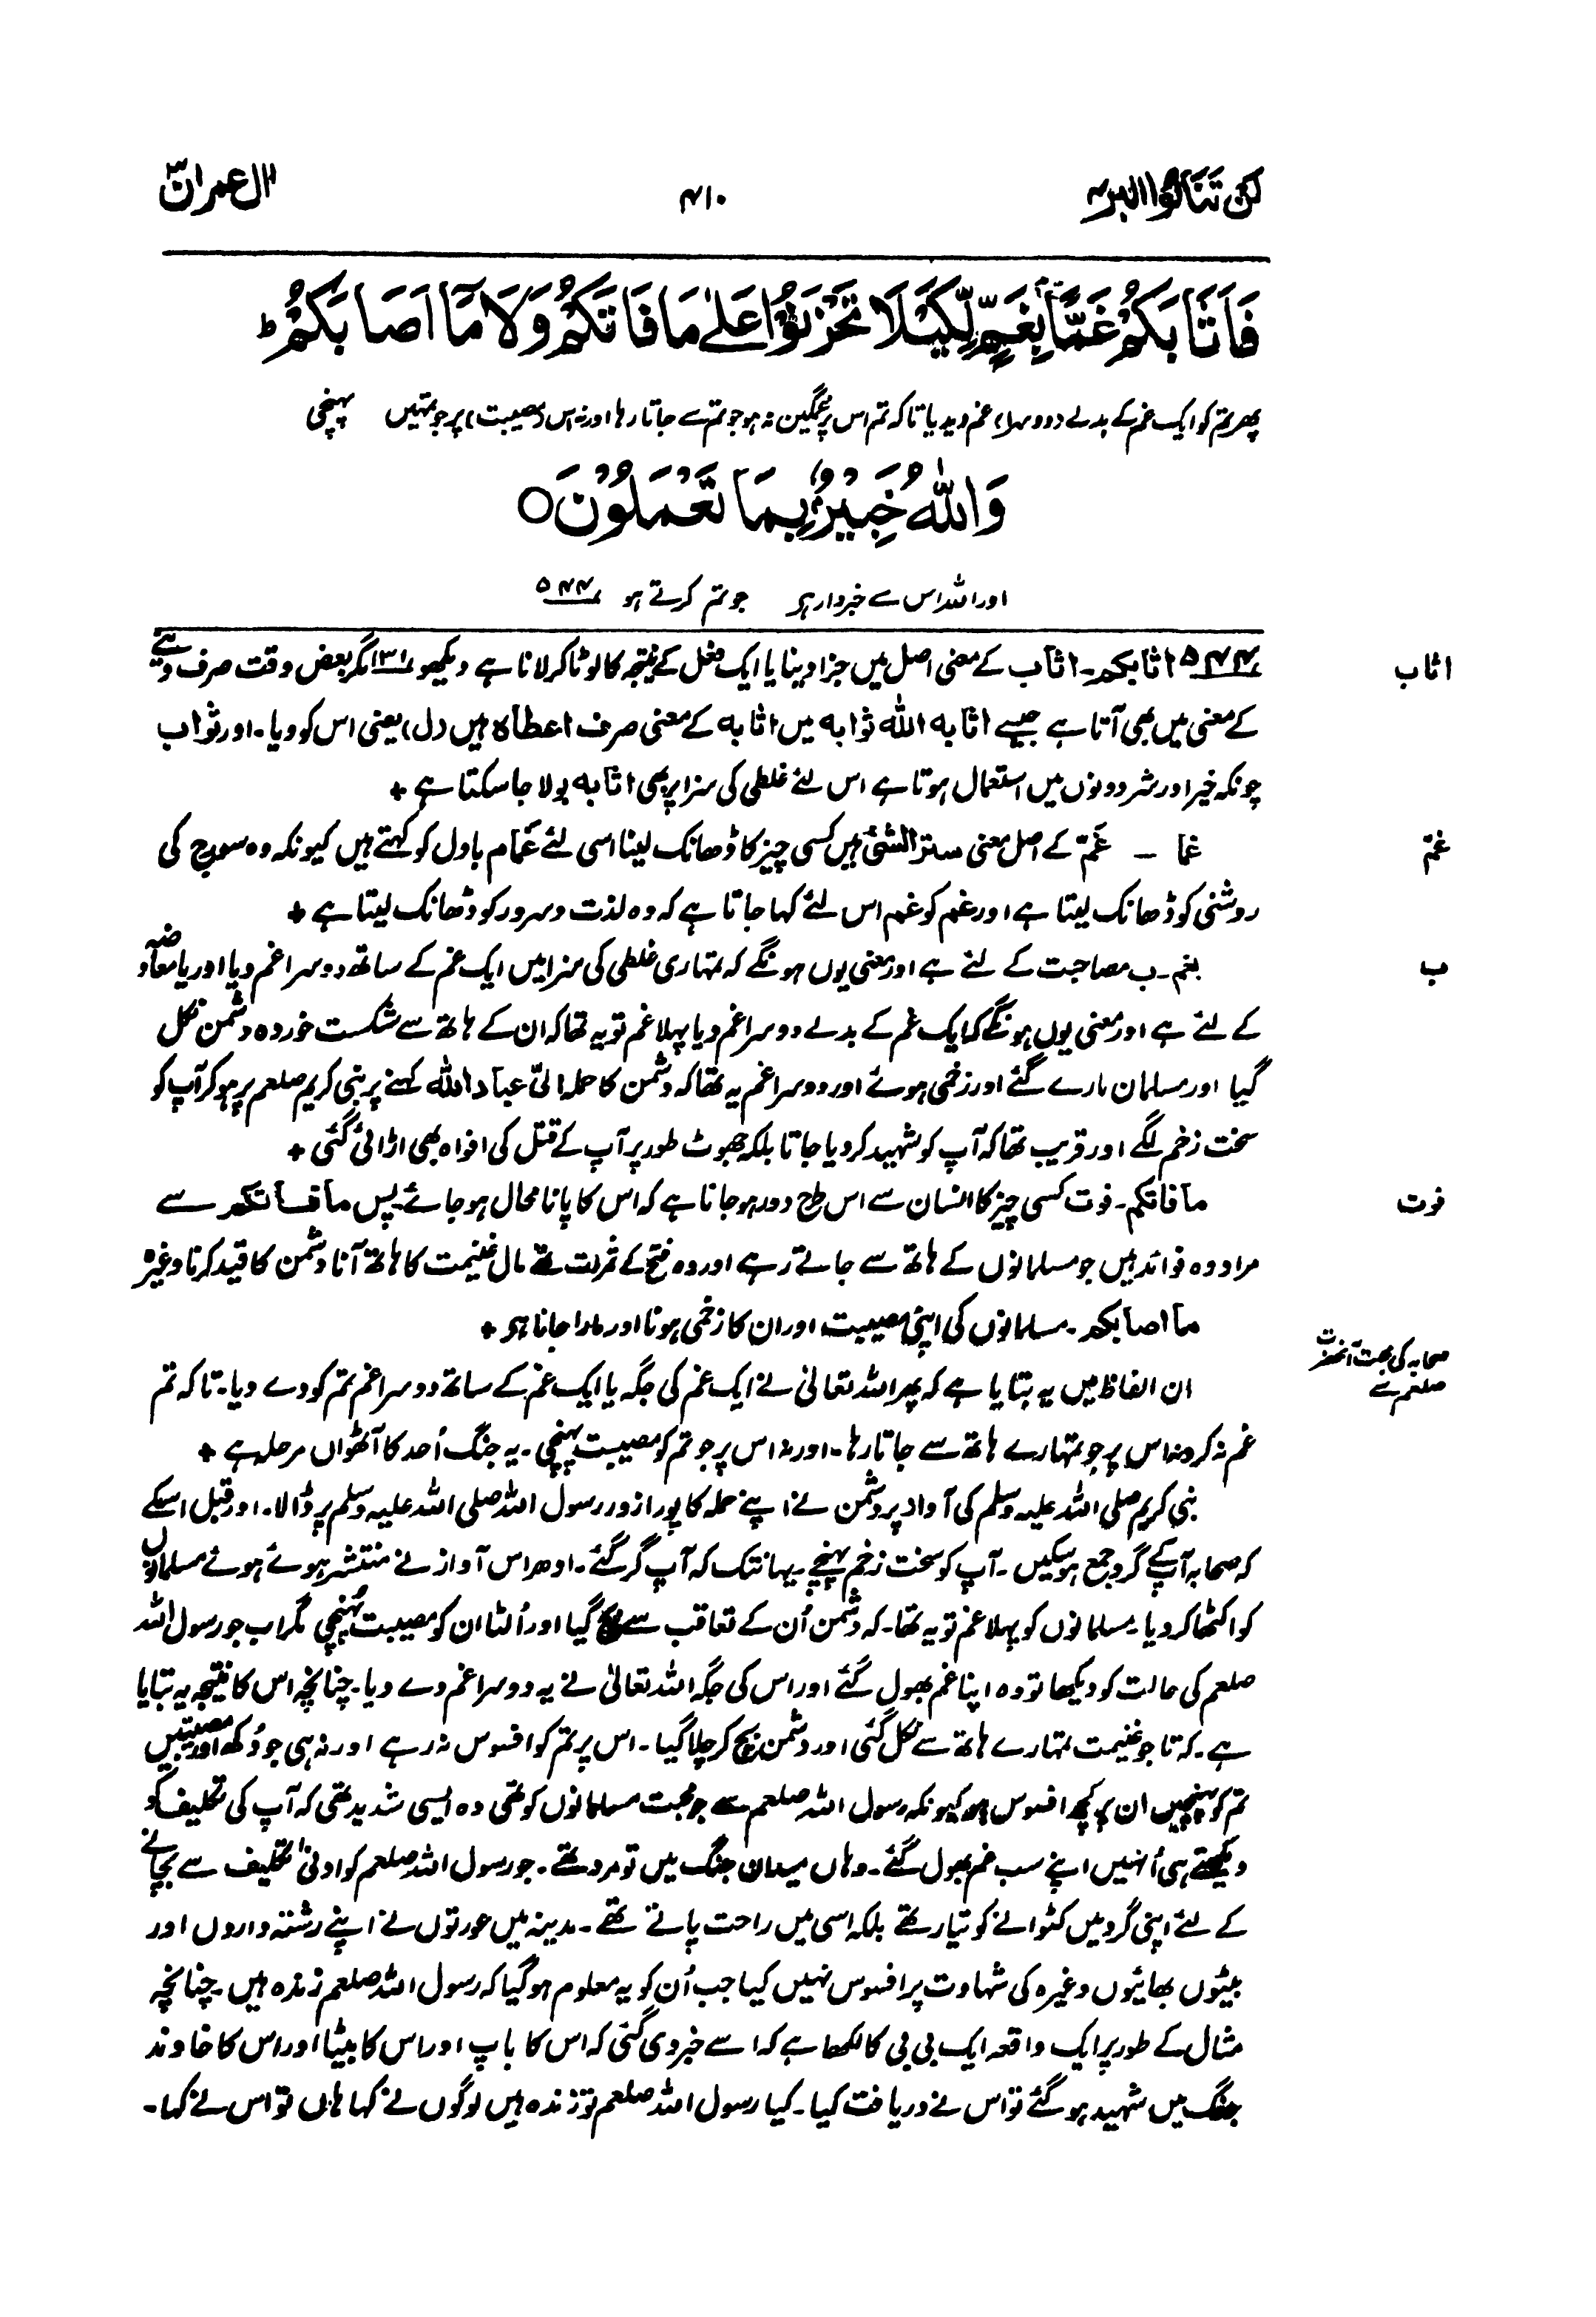 لن تنالوا البر ۴
۴۱۰
اٰل عمران ۳
فَاَثَابَكُمْ غَمًّۢا بِغَمٍّ لِّكَيْلَا تَحْزَنُوْا عَلٰى مَا فَاتَكُمْ وَلَا مَآ اَصَابَكُمْ ؕ
پھر تم کو ایک غم کے بدلے (دوسرا) غم دیدیا تاکہ تم اس پر غمگین نہ ہو جو تم سے جاتا رہا اور نہ اس (مصیبت) پر جو تمہیں پہنچی
وَاللّٰهُ خَبِيْرٌۢ بِمَا تَعْمَلُوْنَ ○
اور اللہ اس سے خبردار ہے جو تم کرتے ہو ۵۴۴
اثاب
۵۴۴ اثابکم۔ اثاب کے معنی اصل میں جزا دینا یا ایک فعل کے نتیجہ کا لوٹا کر لانا ہے دیکھو ۱۳۱ مگر بعض وقت صرف دینے
کے معنی میں بھی آتا ہے جیسے اثابہ اللہ ثوابہ میں اثابہ کے معنی صرف اعطاہ ہیں (ل) یعنی اس کو دیا۔ اور ثواب
چونکہ خیر اور شر دونوں میں استعمال ہوتا ہے اس لئے غلطی کی سزا پر بھی اثابہ بولا جا سکتا ہے +
غمّ
غما ۔ غَمّ کے اصل معنی ستر الشئ ہیں کسی چیز کا ڈھانک لینا اسی لئے غمام بادل کو کہتے ہیں کیونکہ وہ سورج کی
روشنی کو ڈھانک لیتا ہے اور غم کو غم اس لئے کہا جاتا ہے کہ وہ لذت و سرور کو ڈھانک لیتا ہے +
ب
بغم۔ ب مصاحبت کے لئے ہے اور معنی یوں ہونگے کہ تمہاری غلطی کی سزا میں ایک غم کے ساتھ دوسرا غم دیا اور یا معاوضہ
کے لئے ہے اور معنی یوں ہونگے کہ ایک غم کے بدلے دوسرا غم دیا پہلا غم تو یہ تھا کہ ان کے ہاتھ سے شکست خوردہ دشمن نکل
گیا اور مسلمان مارے گئے اور زخمی ہوئے اور دوسرا غم یہ تھا کہ دشمن کا حملہ الیّ عباد اللہ کہنے پر نبی کریم صلعم پر ہو کر آپ کو
سخت زخم لگے اور قریب تھا کہ آپ کو شہید کر دیا جاتا بلکہ جھوٹ طور پر آپ کے قتل کی افواہ بھی اڑائی گئی +
فوت
مافاتکم۔ فوت کسی چیز کا انسان سے اس طرح دور ہو جانا ہے کہ اس کا پانا محال ہو جائے پس مافاتکم سے
مراد وہ فوائد ہیں جو مسلمانوں کے ہاتھ سے جاتے رہے اور وہ فتح کے ثمرات تھے مال غنیمت کا ہاتھ آنا دشمن کا قید کرنا وغیرہ
ما اصابکم۔ مسلمانوں کی اپنی مصیبت اور ان کا زخمی ہونا اور مارا جانا ہے +
صحابہ کی محبت آنحضرت
صلعم سے
ان الفاظ میں یہ بتایا ہے کہ پھر اللہ تعالیٰ نے ایک غم کی جگہ یا ایک غم کے ساتھ دوسرا غم تم کو دے دیا۔ تاکہ تم
غم نہ کرو نہ اس پر جو تمہارے ہاتھ سے جاتا رہا۔ اور نہ اس پر جو تم کو مصیبت پہنچی۔ یہ جنگ اُحد کا آٹھواں مرحلہ ہے +
نبی کریم صلی اللہ علیہ وسلم کی آواز پر دشمن نے اپنے حملہ کا پورا زور رسول اللہ صلی اللہ علیہ وسلم پر ڈالا۔ اور قبل اسکے
کہ صحابہ آپکے گرد جمع ہو سکیں۔ آپ کو سخت زخم پہنچے۔ یہانتک کہ آپ گر گئے۔ ادھر اس آواز نے منتشر ہوئے ہوئے مسلمانوں
کو اکٹھا کر دیا۔ مسلمانوں کو پہلا غم تو یہ تھا۔ کہ دشمن اُن کے تعاقب سے بچ گیا اور اُلٹا ان کو مصیبت پہنچی مگر اب جو رسول اللہ
صلعم کی حالت کو دیکھا تو وہ اپنا غم بھول گئے اور اس کی جگہ اللہ تعالیٰ نے یہ دوسرا غم دے دیا۔ چنانچہ اس کا نتیجہ یہ بتایا
ہے۔ کہ تا جو غنیمت تمہارے ہاتھ سے نکل گئی اور دشمن بچ کر چلا گیا۔ اس پر تم کو افسوس نہ رہے اور نہ ہی جو دُکھ اور مصیبتیں
تم کو پہنچیں ان پر کچھ افسوس ہو کیونکہ رسول اللہ صلعم سے جو محبت مسلمانوں کو تھی وہ ایسی شدید تھی کہ آپ کی تکلیف کو
دیکھتے ہی اُنہیں اپنے سب غم بھول گئے۔ وہاں میدان جنگ میں تو مرد تھے۔ جو رسول اللہ صلعم کو ادنیٰ تکلیف سے بچانے
کے لئے اپنی گردنیں کٹوانے کو تیار تھے بلکہ اسی میں راحت پاتے تھے۔ مدینہ میں عورتوں نے اپنے رشتہ داروں اور
بیٹوں بھائیوں وغیرہ کی شہادت پر افسوس نہیں کیا جب اُن کو یہ معلوم ہو گیا کہ رسول اللہ صلعم زندہ ہیں۔ چنانچہ
مثال کے طور پر ایک واقعہ ایک بی بی کا لکھا ہے کہ اسے خبر دی گئی کہ اس کا باپ اور اس کا بیٹا اور اس کا خاوند
جنگ میں شہید ہو گئے تو اس نے دریافت کیا۔ کیا رسول اللہ صلعم تو زندہ ہیں لوگوں نے کہا ہاں تو اس نے کہا۔